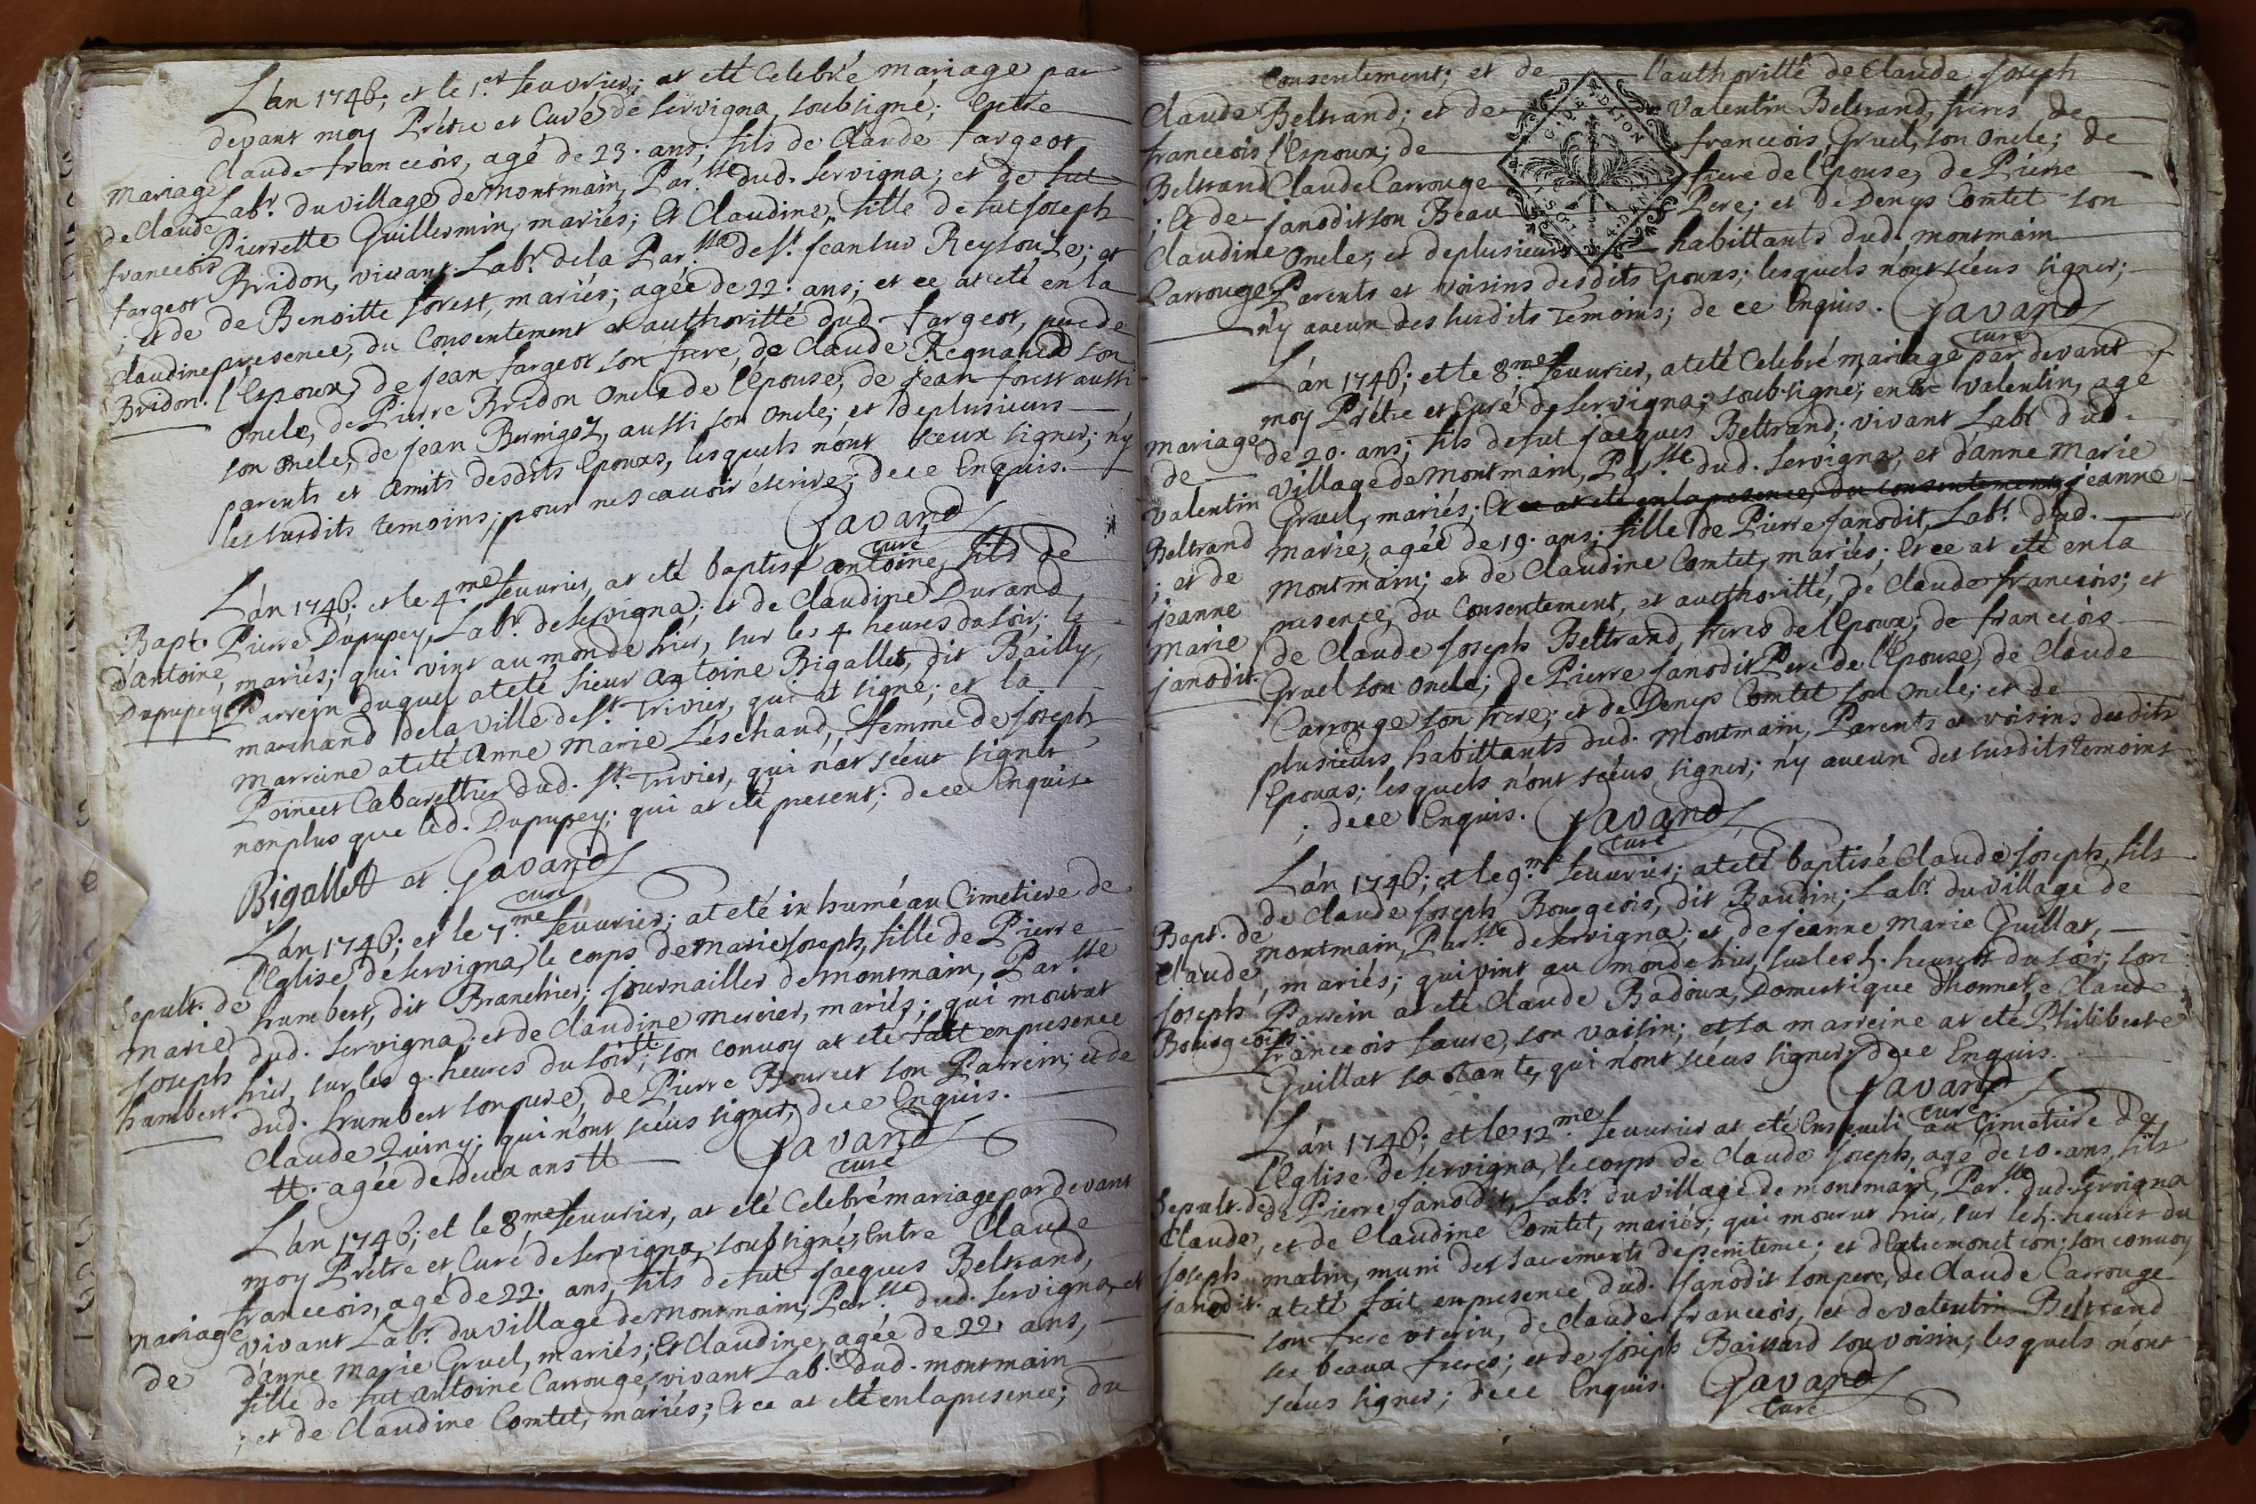 L'an 1746; et le 1.er feuvrier; at eté Celebré mariage par
devant moy Prétre et Curé de Servigna, soubsigné; Entre
Claude franceois, agé de 23. ans; fils de Claude fargeot
Labr. du village de montmain, Par.sse dud. Servigna; et de fut
Pierrette Guillermin, mariés; Et Claudine, fille de fut Joseph
Bridon, vivant Labr. de la Par.sse de St. Jean sur Reysouze; et
de Benoitte forest, mariés; agée de 22. ans; et ce at eté en la
presence, du Consentement et authoritté dud. fargeot, pere de
l'Epoux, de jean fargeot son frere, de Claude Regnaud son
Oncle, de Pierre Bridon Oncle de l'Epouse, de jean forest aussi
son Oncle, de jean Bernigoz, aussi son Oncle; et de plusieurs
parents et amits desdits Epouxs, lesquels n'ont sceux signer; n'y
les susdits temoins; pour ne scavoir éscrire; de ce Enquis.
Gavand
curé
mariage
de Claude
franceois
fargeot
; et de
Claudine
Bridon.
L'án 1746; et le 4.me feuvrier, at eté baptisé antoine, fils de
Pierre Dupupey, Labr. de Servigna; et de Claudine Durand
, mariés; qui vint au monde hier, sur les 4. heures du soir; le
Parrein duquel at eté sieur antoine Bigallet, dit Bailly,
marchand de la ville de St. Trivier, qui at signé; et la
marreine at eté Anne Marie Leschaud, femme de Joseph
Poincet Cabarettier dud. St. Trivier, qui n'at scéut signer
non plus que led. Dupupey; qui at eté present; de ce Enquis.
Bigallet at Gavand
curé
Bapt.
d'antoine
Dupupey
L'án 1746; et le 7.me feuvrier; at eté inhumé au Cimetiere de
l'Eglise de Servigna, le corps de marie Joseph, fille de Pierre
humbert, dit Branchier; journallier de montmain, Par.sse
dud. Servigna; et de Claudine mercier, mariés; qui mourut
hier, sur les 9. heures du soir tt; son convoy at eté fait en presence
dud. humbert son pere, de Pierre Bourcet son Parrein; et de
Claude Quiny; qui n'ont scéus signer; de ce Enquis.
tt. agée de deux ans tt
Gavand
curé
Sepult. de
marie
Joseph
humbert.
L'án 1746; et le 8.me feuvrier, at eté Celebré mariage par devant
moy Prétre et Curé de Servigna, soubsigné; Entre Claude
franceois, agé de 22. ans, fils de fut jacques Beltrand,
vivant Labr. du village de montmain, Par.sse dud. Servigna, et
d'anne marie Gruel, mariés; Et Claudine, agée de 22. ans,
fille de fut antoine Carrouge, vivant Labr. dud. montmain
; et de Claudine Comtet, mariés; Et ce at eté en la presence; du
mariage
de
Consentement; et de l'authoritté de Claude Joseph
Beltrand; et de Valentin Beltrand, freres de
l'Epoux; de francois Gruel, son Oncle; de
Claude Carrouge frere de l'Epouse, de Pierre
janodit son Beau Pere; et de Denys Comtet son
Oncle, et de plusieurs habittants dud. montmain
Parents et voisins desdits Epouxs; lesquels n'ont scéus signer;
n'y aucun des susdits temoins; de ce Enquis. Gavand
curé
G. DE DIJON
Claude
francois
Beltrand
; Et de
Claudine
Carrouge
L'án 1746; et le 8.me feuvrier, at eté Celebré mariage par devant
moy Prétre et Curé de Servigna; soubsigné; entre valentin, agé
de 20. ans; fils de fut jacques Beltrand; vivant Labr dud.
village de montmain, Par.sse dud. Servigna; et d'anne Marie
Gruel, mariés; Et ce at eté en la presence, du consentement, jeanne
marie, agée de 19. ans; fille de Pierre janodit, Labr. dud.
montmain; et de Claudine Comtet, mariés; Et ce at eté en la
presence, du Consentement, et aucthoritté, de Claude francois; et
de Claude Joseph Beltrand, freres de l'Epoux; de francois
Gruel son Oncle; de Pierre janodit Pere de l'Epouse, de Claude
Carrouge son frere; et de Denys Comtet son Oncle; et de
plusieurs habittants dud. montmain, Parents et voisins desdits
Epouxs; lesquels n'ont scéus signer; n'y aucun des susdits temoins
; de ce Enquis. Gavand
curé
mariage
de
valentin
Beltrand
; et de
jeanne
marie
janodit.
L'án 1746; et le 9.me feuvrier; at eté baptisé Claude Joseph, fils
de Claude Joseph Bourgeois, dit Baudin; Labr. du village de
montmain, Par.sse de Servigna; et de jeanne marie Guillat,
, mariés; qui vint au monde hier, sur les 5. heures du soir; son
Parrein at eté Claude Badoux, Domestique d'honnete Claude
francois faure, son voisin; et sa marreine at eté Philiberte
Guillat sa tante, qui n'ont scéus signer; de ce Enquis.
Gavand
curé
Bapt. de
Claude
Joseph
Bourgeois.
L'án 1746; et le 12.me feuvrier at eté Enseveli au Cimetiere de
l'Eglise de Servigna, le corps de Claude Joseph, agé de 10. ans, fils
de Pierre janodit, Labr. du village de montmain, Par.sse dud. Servigna
, et de Claudine Comtet, mariés; qui mourut hier, sur les 5. heures du
matin, muni des sacrements de penitence; et d'Extremonction; son convoy
at eté fait en presence dud. janodit son pere, de Claude Carrouge
son frere uterin, de Claude francois, et de valentin Beltrand
ses beaux freres; et de joseph Baissard son voisin; lesquels n'ont
scéus signer; de ce Enquis. Gavand
curé
Sepult. de
Claude
Joseph
janodit.